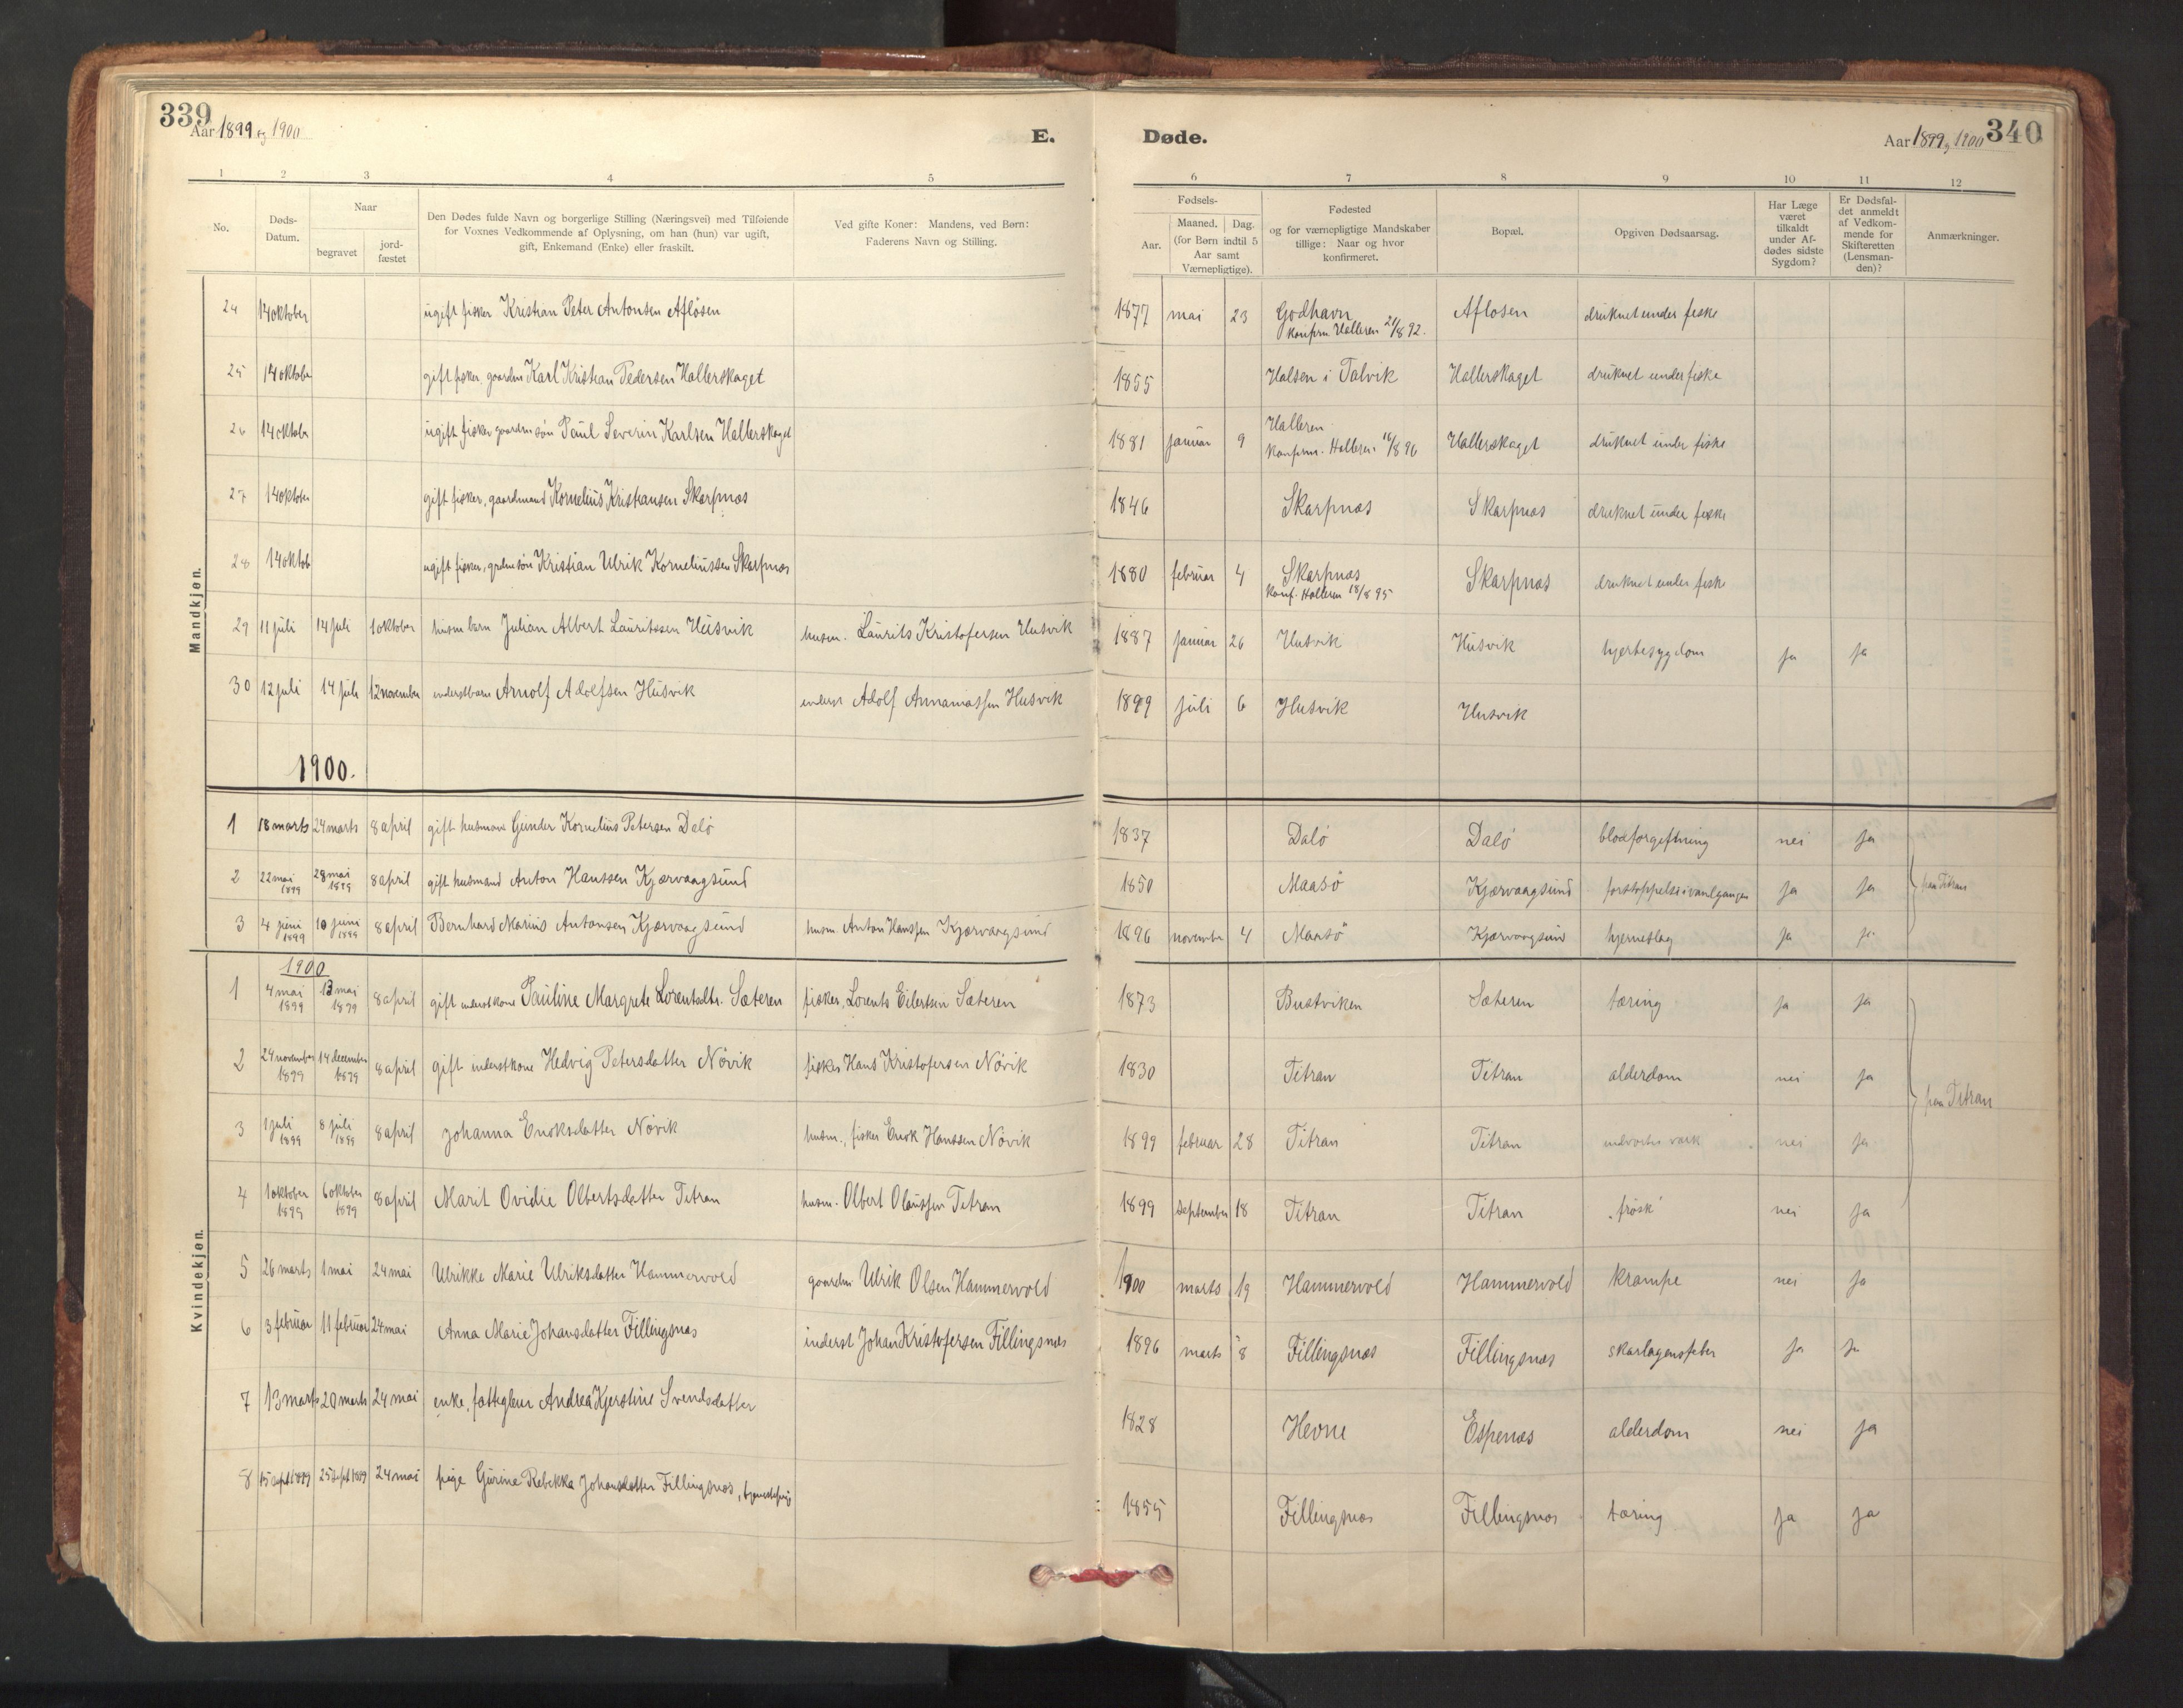 339
Aar 1899 og 1900
E.
Døde.
Aar 1899 og 1900
340
1 2 3 4 5 6 7 8 9 10 11 12
No.
Døds-
Datum.
Naar
begravet
jord-
fæstet
Den Dødes fulde Navn og borgerlige Stilling (Næringsvei) med Tilføiende
for Voxnes Vedkommende af Oplysning, om han (hun) var ugift,
gift, Enkemand (Enke) eller fraskilt.
Ved gifte Koner: Mandens, ved Børn:
Faderens Navn og Stilling.
Fødsels-
Aar.
Maaned. Dag.
(for Børn indtil 5
Aar samt
Værnepligtige).
Fødested
og for værnepligtige Mandskaber
tillige: Naar og hvor
konfirmeret.
Bopæl.
Opgiven Dødsaarsag.
Har Læge
været
tilkaldt
under Af-
dødes sidste
Sygdom?
Er Dødsfal-
det anmeldt
af Vedkom-
mende for
Skifteretten
(Lensman-
den)?
Anmærkninger.
Mandkjøn.
24 14 oktober ugift fisker Kristian Peter Antonsen Afløsen 1877 mai 23 Godhavn Afløsen druknet under fiske
konfirm Halleren 21/8 92.
25 14 oktobe gift fisker, gaardm Karl Kristian Pedersen Hallerskaget 1855 Halsen i Talvik Hallerskaget druknet under fiske
26 14 oktobr ugift fisker gaardm søn Paul Severin Karlsen Hallerskaget 1881 januar 9 Halleren Hallerskaget druknet under fiske
konfirm. Halleren 16/8 96
27 14 oktober gift fisker, gaardmand Kornelius Kristiansen Skarpnæs 1846 Skarpnæs Skarpnæs druknet under fiske
28 14 oktob ugift fisker, grdmsøn Kristian Ulrik Korneliussen Skarpnæs 1880 februar 4 Skarpnæs Skarpnæs druknet under fiske
konf. Halleren 18/8 95
29 11 juli 14 juli 1 oktober husm barn Julian Albert Lauritssen Husvik husm. Laurits Kristofersen Husvik 1887 januar 26 Husvik Husvik hjertesygdom ja ja
30 12 juli 14 juli 12 november inderstbarn Arnolf Adolfsen Husvik inderst Adolf Annaniassen Husvik 1899 juli 6 Husvik Husvik
1900.
1 18 marts 24 marts 8 april gift husmand Gunder Kornelius Petersen Dalø 1837 Dalø Dalø blodforgiftning nei ja
2 22 mai 1899 28 mai 1899 8 april gift husmand Anton Hanssen Kjærvaagsund 1850 Maasö Kjærvaagsund forstoppelse i ja ja fra Titran
3 4 juni 1899 10 juni 1899 8 april Bernhard Marius Antonsen Kjærvaagsund husm. Anton Hanssen Kjærvaagsund 1896 november 4 Maasö Kjærvaagsund hjerneslag ja ja
Kvindekjøn.
1900
1 4 mai 1899 13 mai 1899 8 april gift inderstkone Pauline Margrete Lorentsdtr. Sæteren fisker, Lorents Eilertsen Sæteren 1873 Bustviken Sæteren tæring ja ja
2 24 november 1899 14 december 1899 8 april gift inderstkone Hedvig Petersdatter Növik fisker Hans Kristofersen Növik 1830 Titran Titran alderdom nei ja
fra Titran
3 1 juli 1899 8 juli 1899 8 april Johanna Enoksdatter Növik husm., fisker Enok Hanssen Növik 1899 februar 28 Titran Titran indvortes værk nei ja
4 1 oktober 1899 6 oktober 1899 8 april Marit Ovidie Olbertsdatter Titran husm. Olbert Olaussen Titran 1899 september 18 Titran Titran "frosk" nei ja
5 26 marts 1 mai 24 mai Ulrikke Marie Ulriksdatter Hammervold gaardm Ulrik Olsen Hammervold 1900 marts 19 Hammervold Hammervold krampe nei ja
6 3 februar 11 februar 24 mai Anna Marie Johansdatter Fillingsnæs inderst Johan Kristofersen Fillingsnæs 1896 marts 8 Fillingsnæs Fillingsnæs skarlagensfeber ja ja
7 13 marts 20 marts 24 mai enke, fattiglem Andrea Kjerstine Svendsdatter 1828 Hevne Espenæs alderdom nei ja
8 15 sept 1899 25 sept 1899 24 mai pige Gurine Rebekka Johansdatter Fillingsnæs, tjenestepige 1855 Fillingsnæs Fillingsnæs tæring ja ja